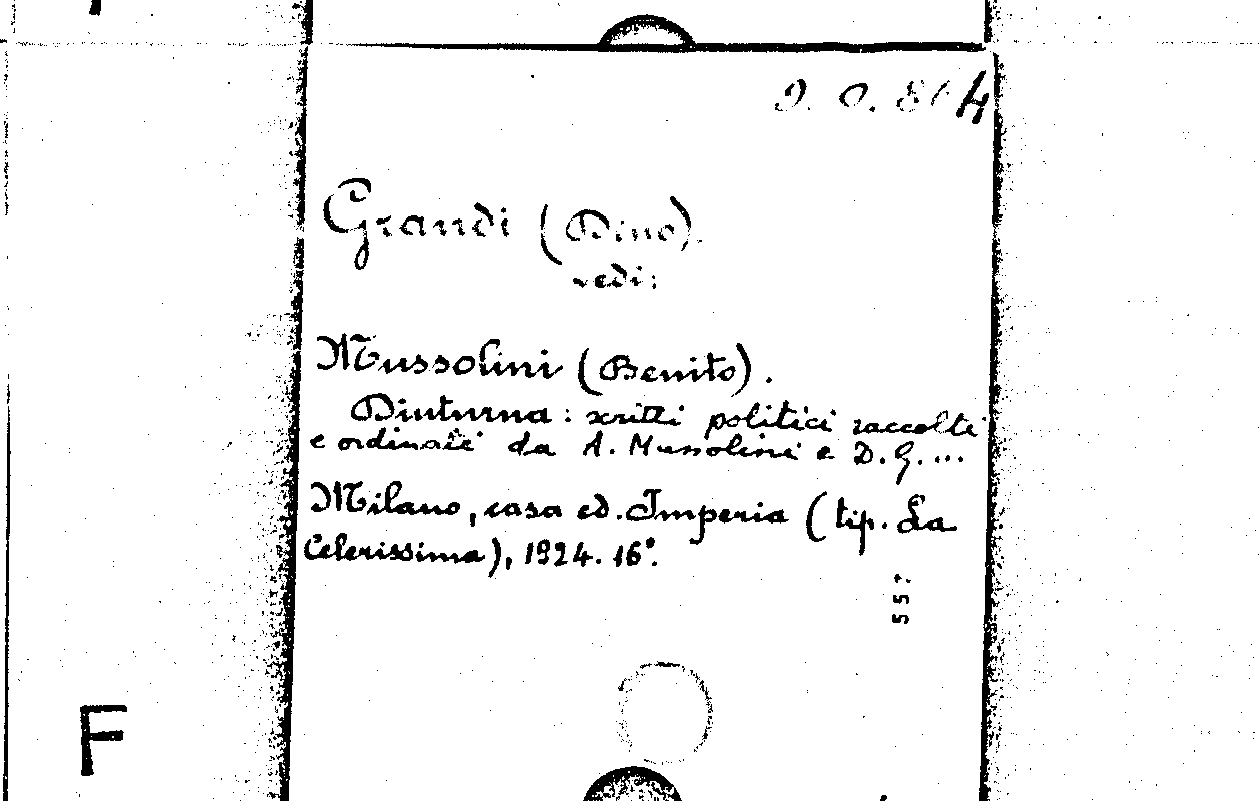 9. O. 814
Grandi (Dino).
vedi:
Mussolini (Benito).
Diuturna: scritti politici raccolti
e ordinati da A. Mussolini e D. G. ...
Milano, casa ed. Imperia (tip. La
Celerissima), 1924. 16°.
557
F